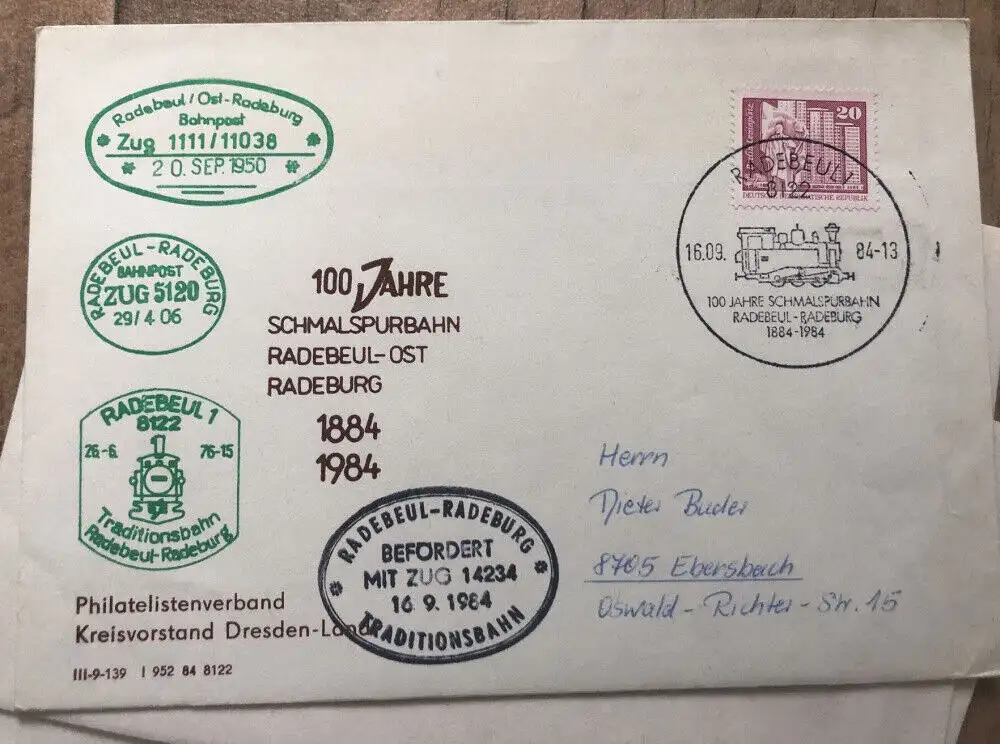 Radebeul/Ost-Radeburg
Bahnpost
* Zug 1111/11038 *
* 20. SEP. 1950 *
RADEBEUL - RADEBURG
BAHNPOST
ZUG 5120
29/4 06
RADEBEUL 1
8122
26.-6. 76-15
Traditionsbahn
Radebeul-Radeburg
100 JAHRE
SCHMALSPURBAHN
RADEBEUL-OST
RADEBURG
1884
1984
20
DEUTSCHE DEMOKRATISCHE REPUBLIK
RADEBEUL 1
8122
16.09. 84-13
100 JAHRE SCHMALSPURBAHN
RADEBEUL-RADEBURG
1884-1984
RADEBEUL-RADEBURG
BEFÖRDERT
MIT ZUG 14234
16 9. 1984
TRADITIONSBAHN
Herrn
Dieter Buder
8705 Ebersbach
Oswald-Richter-Str. 15
Philatelistenverband
Kreisvorstand Dresden-Land
III-9-139 I 952 84 8122